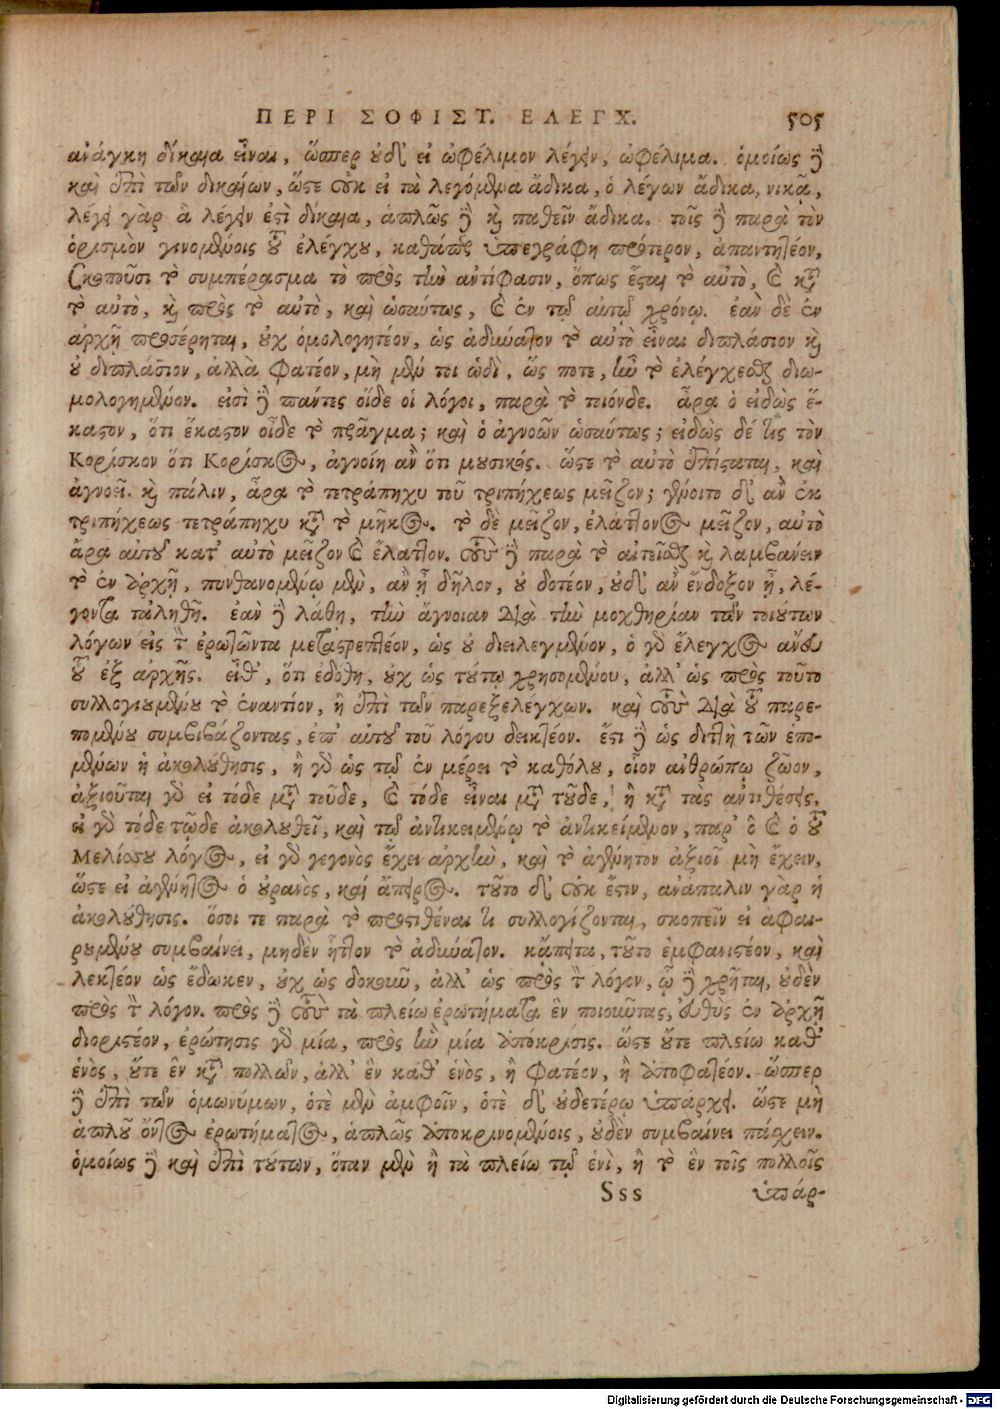 ΠΕΡΙ ΣΟΦΙΣΤ. ΕΛΕΓΧ. 505
ἀνάγκη δίκαια εἶναι, ὥσπερ οὐδ' εἰ ὠφέλιμον λέγειν, ὠφέλιμα. ὁμοίως δὲ
καὶ ἐπὶ τῶν δικαίων, ὥστε οὐκ εἰ τὰ λεγόμενα ἄδικα, ὁ λέγων ἄδικα, νικᾷ,
λέγει γὰρ ἃ λέγειν ἐστὶ δίκαια, ἁπλῶς δὲ καὶ παθεῖν ἄδικα. τοῖς δὲ παρὰ τὸν
ὁρισμὸν γινομένοις τοῦ ἐλέγχου, καθάπερ ὑπεγράφη πρότερον, ἀπαντητέον,
σκοποῦσι τὸ συμπέρασμα τὸ πρὸς τὴν ἀντίφασιν, ὅπως ἔσται τὸ αὐτὸ, καὶ κατὰ
τὸ αὐτὸ, καὶ πρὸς τὸ αὐτὸ, καὶ ὡσαύτως, καὶ ἐν τῷ αὐτῷ χρόνῳ. ἐὰν δὲ ἐν
ἀρχῇ προσέρηται, οὐχ ὁμολογητέον, ὡς ἀδύνατον τὸ αὐτὸ εἶναι διπλάσιον καὶ
οὐ διπλάσιον, ἀλλὰ φατέον, μὴ μέν τοι ὡδὶ, ὥς ποτε, ἦν τὸ ἐλέγχεσθαι διω-
μολογημένον. εἰσὶ δὲ πάντες οἵδε οἱ λόγοι, παρὰ τὸ τοιόνδε. ἆρα ὁ εἰδὼς ἕ-
καστον, ὅτι ἕκαστον οἶδε τὸ πρᾶγμα; καὶ ὁ ἀγνοῶν ὡσαύτως; εἰδὼς δέ τις τὸν
Κορίσκον ὅτι Κορίσκος, ἀγνοίη ἂν ὅτι μουσικός. ὥστε τὸ αὐτὸ ἐπίσταται, καὶ
ἀγνοεῖ. καὶ πάλιν, ἆρα τὸ τετράπηχυ τοῦ τριπήχεως μεῖζον; γένοιτο δ' ἂν ἐκ
τριπήχεως τετράπηχυ κατὰ τὸ μῆκος. τὸ δὲ μεῖζον, ἐλάττονος μεῖζον, αὐτὸ
ἄρα αὑτοῦ κατ' αὐτὸ μεῖζον καὶ ἔλαττον. τοὺς δὲ παρὰ τὸ αἰτεῖσθαι καὶ λαμβάνειν
τὸ ἐν ἀρχῇ, πυνθανομένῳ μὲν, ἂν ᾖ δῆλον, οὐ δοτέον, οὐδ' ἂν ἔνδοξον ᾖ, λέ-
γοντα τἀληθῆ. ἐὰν δὲ λάθῃ, τὴν ἄγνοιαν διὰ τὴν μοχθηρίαν τῶν τοιούτων
λόγων εἰς τὸν ἐρωτῶντα μεταστρεπτέον, ὡς οὐ διειλεγμένον, ὁ γὰρ ἔλεγχος ἄνευ
τοῦ ἐξ ἀρχῆς. εἶθ', ὅτι ἐδόθη, οὐχ ὡς τούτῳ χρησομένου, ἀλλ' ὡς πρὸς τοῦτο
συλλογιουμένου τὸ ἐναντίον, ἢ ἐπὶ τῶν παρεξελέγχων. καὶ τοὺς διὰ τοῦ παρε-
πομένου συμβιβάζοντας, ἐπ' αὐτοῦ τοῦ λόγου δεικτέον. ἔστι δὲ ὡς διττὴ τῶν ἑπο-
μένων ἡ ἀκολούθησις, ἢ γὰρ ὡς τῷ ἐν μέρει τὸ καθόλου, οἷον ἀνθρώπῳ ζῶον,
ἀξιοῦται γὰρ εἰ τόδε μετὰ τοῦδε, καὶ τόδε εἶναι μετὰ τοῦδε, ἢ κατὰ τὰς ἀντιθέσεις.
εἰ γὰρ τόδε τῷδε ἀκολουθεῖ, καὶ τῷ ἀντικειμένῳ τὸ ἀντικείμενον, παρ' ὃ καὶ ὁ τοῦ
Μελίσσου λόγος, εἰ γὰρ γεγονὸς ἔχει ἀρχὴν, καὶ τὸ ἀγένητον ἀξιοῖ μὴ ἔχειν,
ὥστε εἰ ἀγένητος ὁ οὐρανὸς, καί ἄπειρος. τοῦτο δ' οὐκ ἔστιν, ἀνάπαλιν γὰρ ἡ
ἀκολούθησις. ὅσοι τε παρὰ τὸ προστιθέναι τι συλλογίζονται, σκοπεῖν εἰ ἀφαι-
ρουμένου συμβαίνει, μηδὲν ἧττον τὸ ἀδύνατον. κἄπειτα, τοῦτο ἐμφανιστέον, καὶ
λεκτέον ὡς ἔδωκεν, οὐχ ὡς δοκοῦν, ἀλλ' ὡς πρὸς τὸν λόγον, ᾧ δὲ χρῆται, οὐδὲν
πρὸς τὸν λόγον. πρὸς δὲ τοὺς τὰ πλείω ἐρωτήματα ἓν ποιοῦντας, εὐθὺς ἐν ἀρχῇ
διοριστέον, ἐρώτησις γὰρ μία, πρὸς ἣν μία ἀπόκρισις. ὥστε οὔτε πλείω καθ'
ἑνὸς, οὔτε ἓν κατὰ πολλῶν, ἀλλ' ἓν καθ' ἑνὸς, ἢ φατέον, ἢ ἀποφατέον. ὥσπερ
δὲ ἐπὶ τῶν ὁμωνύμων, ὁτὲ μὲν ἀμφοῖν, ὁτὲ δ' οὐδετέρῳ ὑπάρχει. ὥστε μὴ
ἁπλοῦ ὄντος ἐρωτήματος, ἁπλῶς ἀποκρινομένοις, οὐδὲν συμβαίνει πάσχειν.
ὁμοίως δὲ καὶ ἐπὶ τούτων, ὅταν μὲν ἢ τὰ πλείω τῷ ἑνὶ, ἢ τὸ ἓν τοῖς πολλοῖς
Sss ὑπάρ-
Digitalisierung gefördert durch die Deutsche Forschungsgemeinschaft - DFG